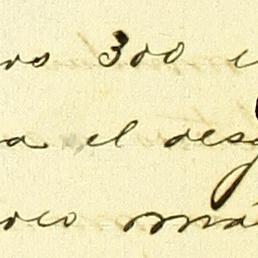 os 300
a el desg
oco má